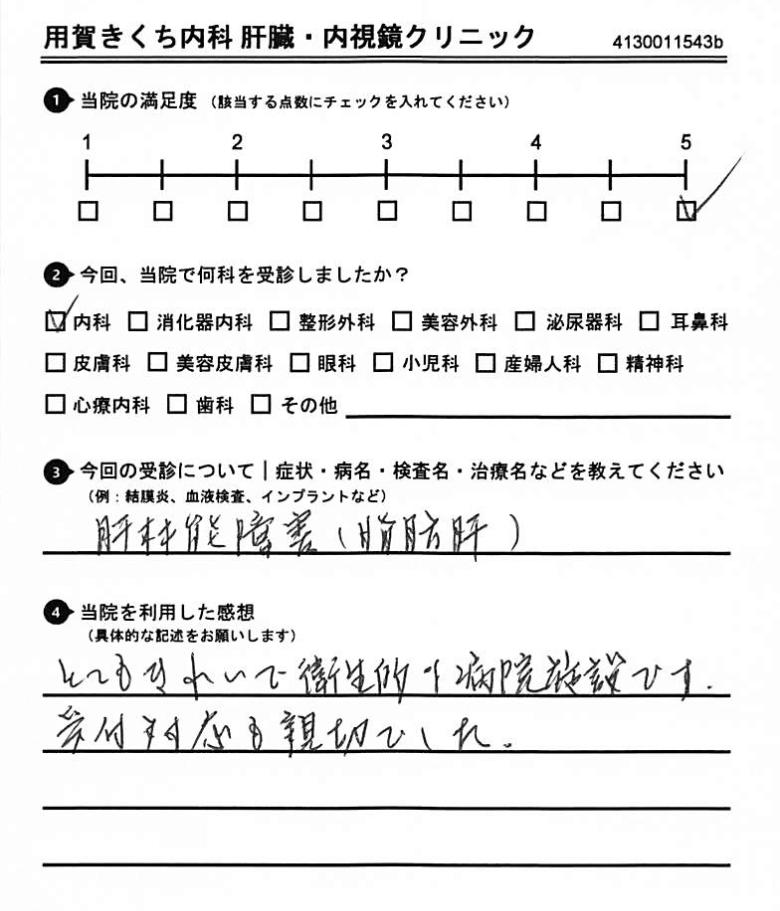 用賀きくち内科 肝臓・内視鏡クリニック 4130011543b
1 当院の満足度 (該当する点数にチェックを入れてください)
1 2 3 4 5
2 今回、当院で何科を受診しましたか？
内科 消化器内科 整形外科 美容外科 泌尿器科 耳鼻科
皮膚科 美容皮膚科 眼科 小児科 産婦人科 精神科
心療内科 歯科 その他
3 今回の受診について｜症状・病名・検査名・治療名などを教えてください
(例：結膜炎、血液検査、インプラントなど)
肝机能障害(脂肪肝)
4 当院を利用した感想
(具体的な記述をお願いします)
とてもきれいで衛生的な病院施設です.
受付対応も親切でした。